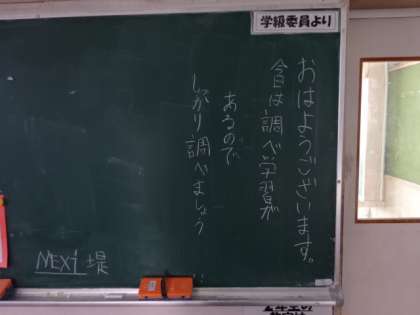 学級委員より
おはようございます。
今日は調べ学習が
あるので
しっかり調べましょう
NEXt 堤